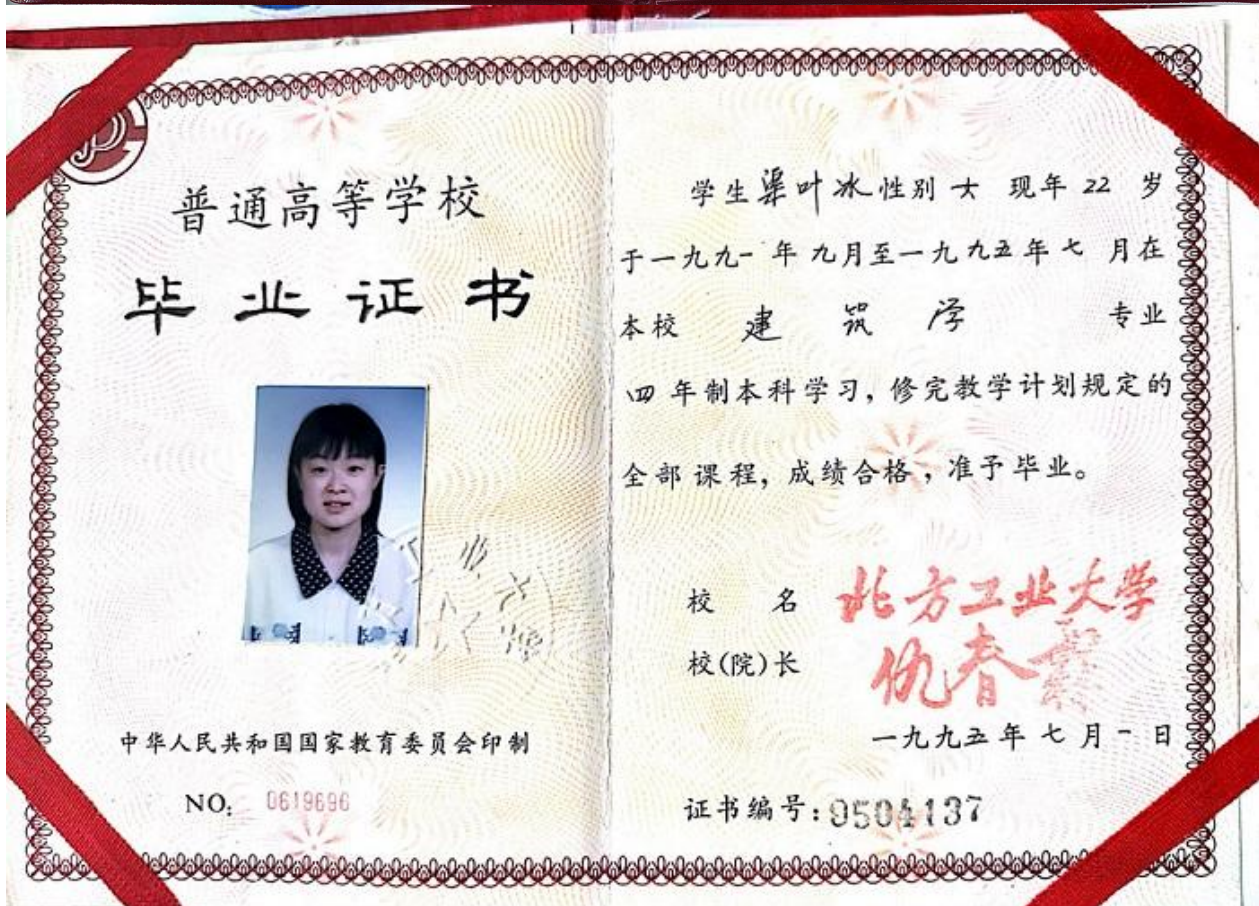 普通高等学校
毕业证书
中华人民共和国国家教育委员会印制
NO: 0619696
学生渠叶冰性别女 现年22岁
于一九九一年九月至一九九五年七月在
本校 建筑学 专业
四年制本科学习，修完教学计划规定的
全部课程，成绩合格，准予毕业。
校名 北方工业大学
校(院)长 仇春霖
一九九五年七月一日
证书编号:9504137